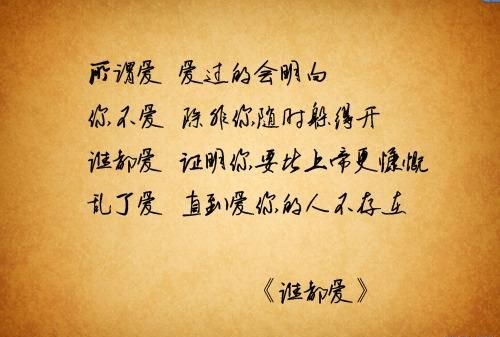 所谓爱 爱过的会明白
你不爱 除非你随时躲得开
谁都爱 证明你要比上帝更慷慨
乱了爱 直到爱你的人不存在
《谁都爱》